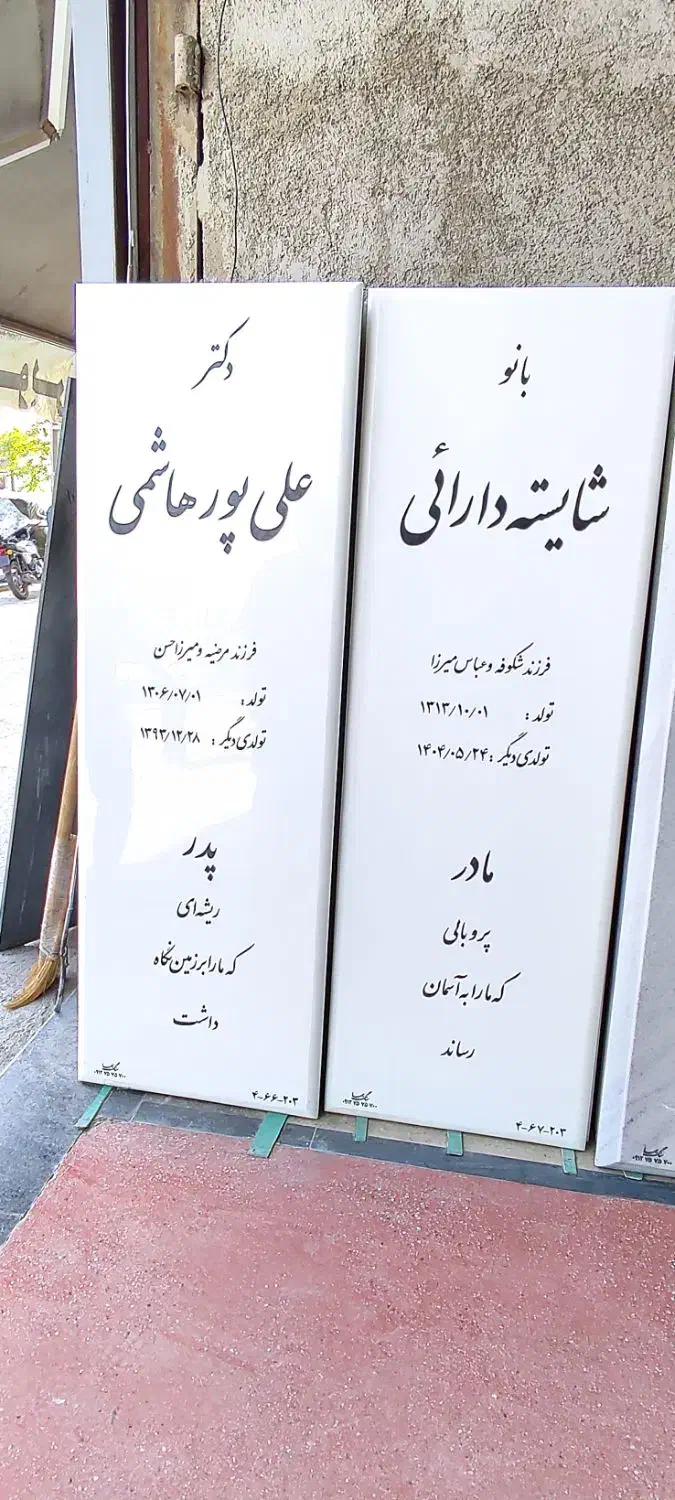 بانو
شایسته دارائی
فرزند شکوفه و عباس میرزا
تولد : ۱۳۱۳/۱۰/۰۱
تولدی دیگر : ۱۴۰۴/۰۵/۲۴
مادر
پر و بالی
که ما را به آسمان
رساند
۴-۶۷-۲۰۳
دکتر
علی پورهاشمی
فرزند مرضیه و میرزا حسن
تولد : ۱۳۰۶/۰۷/۰۱
تولدی دیگر : ۱۳۹۳/۱۲/۲۸
پدر
ریشه‌ای
که ما را بر زمین نگاه
داشت
۴-۶۶-۲۰۳